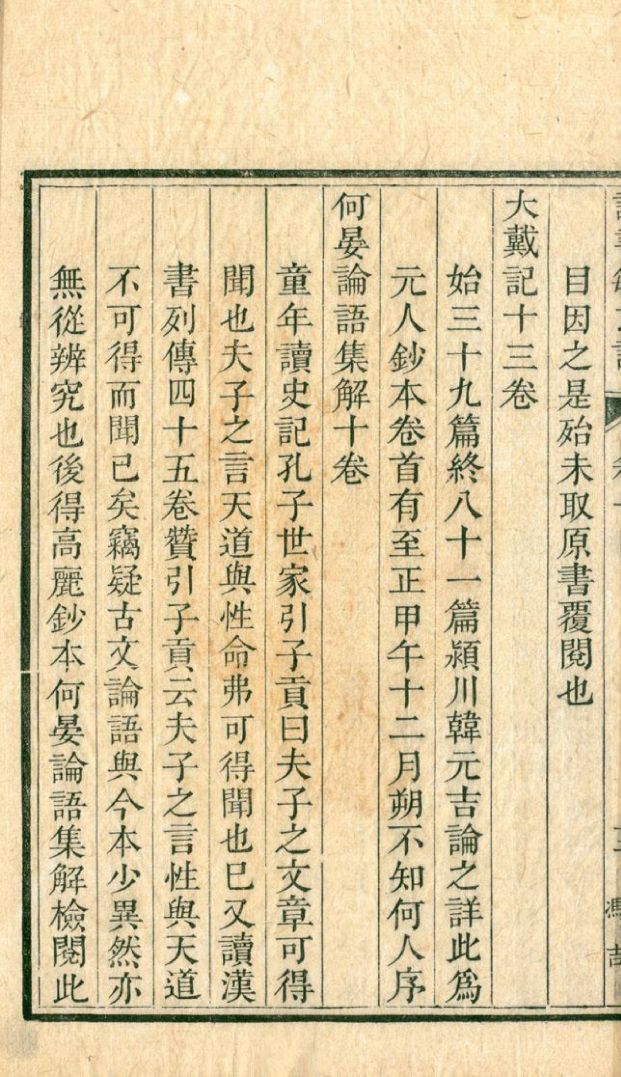 目因之是殆未取原書覆閱也
大戴記十三卷
始三十九篇終八十一篇潁川韓元吉論之詳此爲
元人鈔本卷首有至正甲午十二月朔不知何人序
何晏論語集解十卷
童年讀史記孔子世家引子貢曰夫子之文章可得
聞也夫子之言天道與性命弗可得聞也巳又讀漢
書列傳四十五卷贊引子貢云夫子之言性與天道
不可得而聞已矣竊疑古文論語與今本少異然亦
無從辨究也後得高麗鈔本何晏論語集解檢閱此